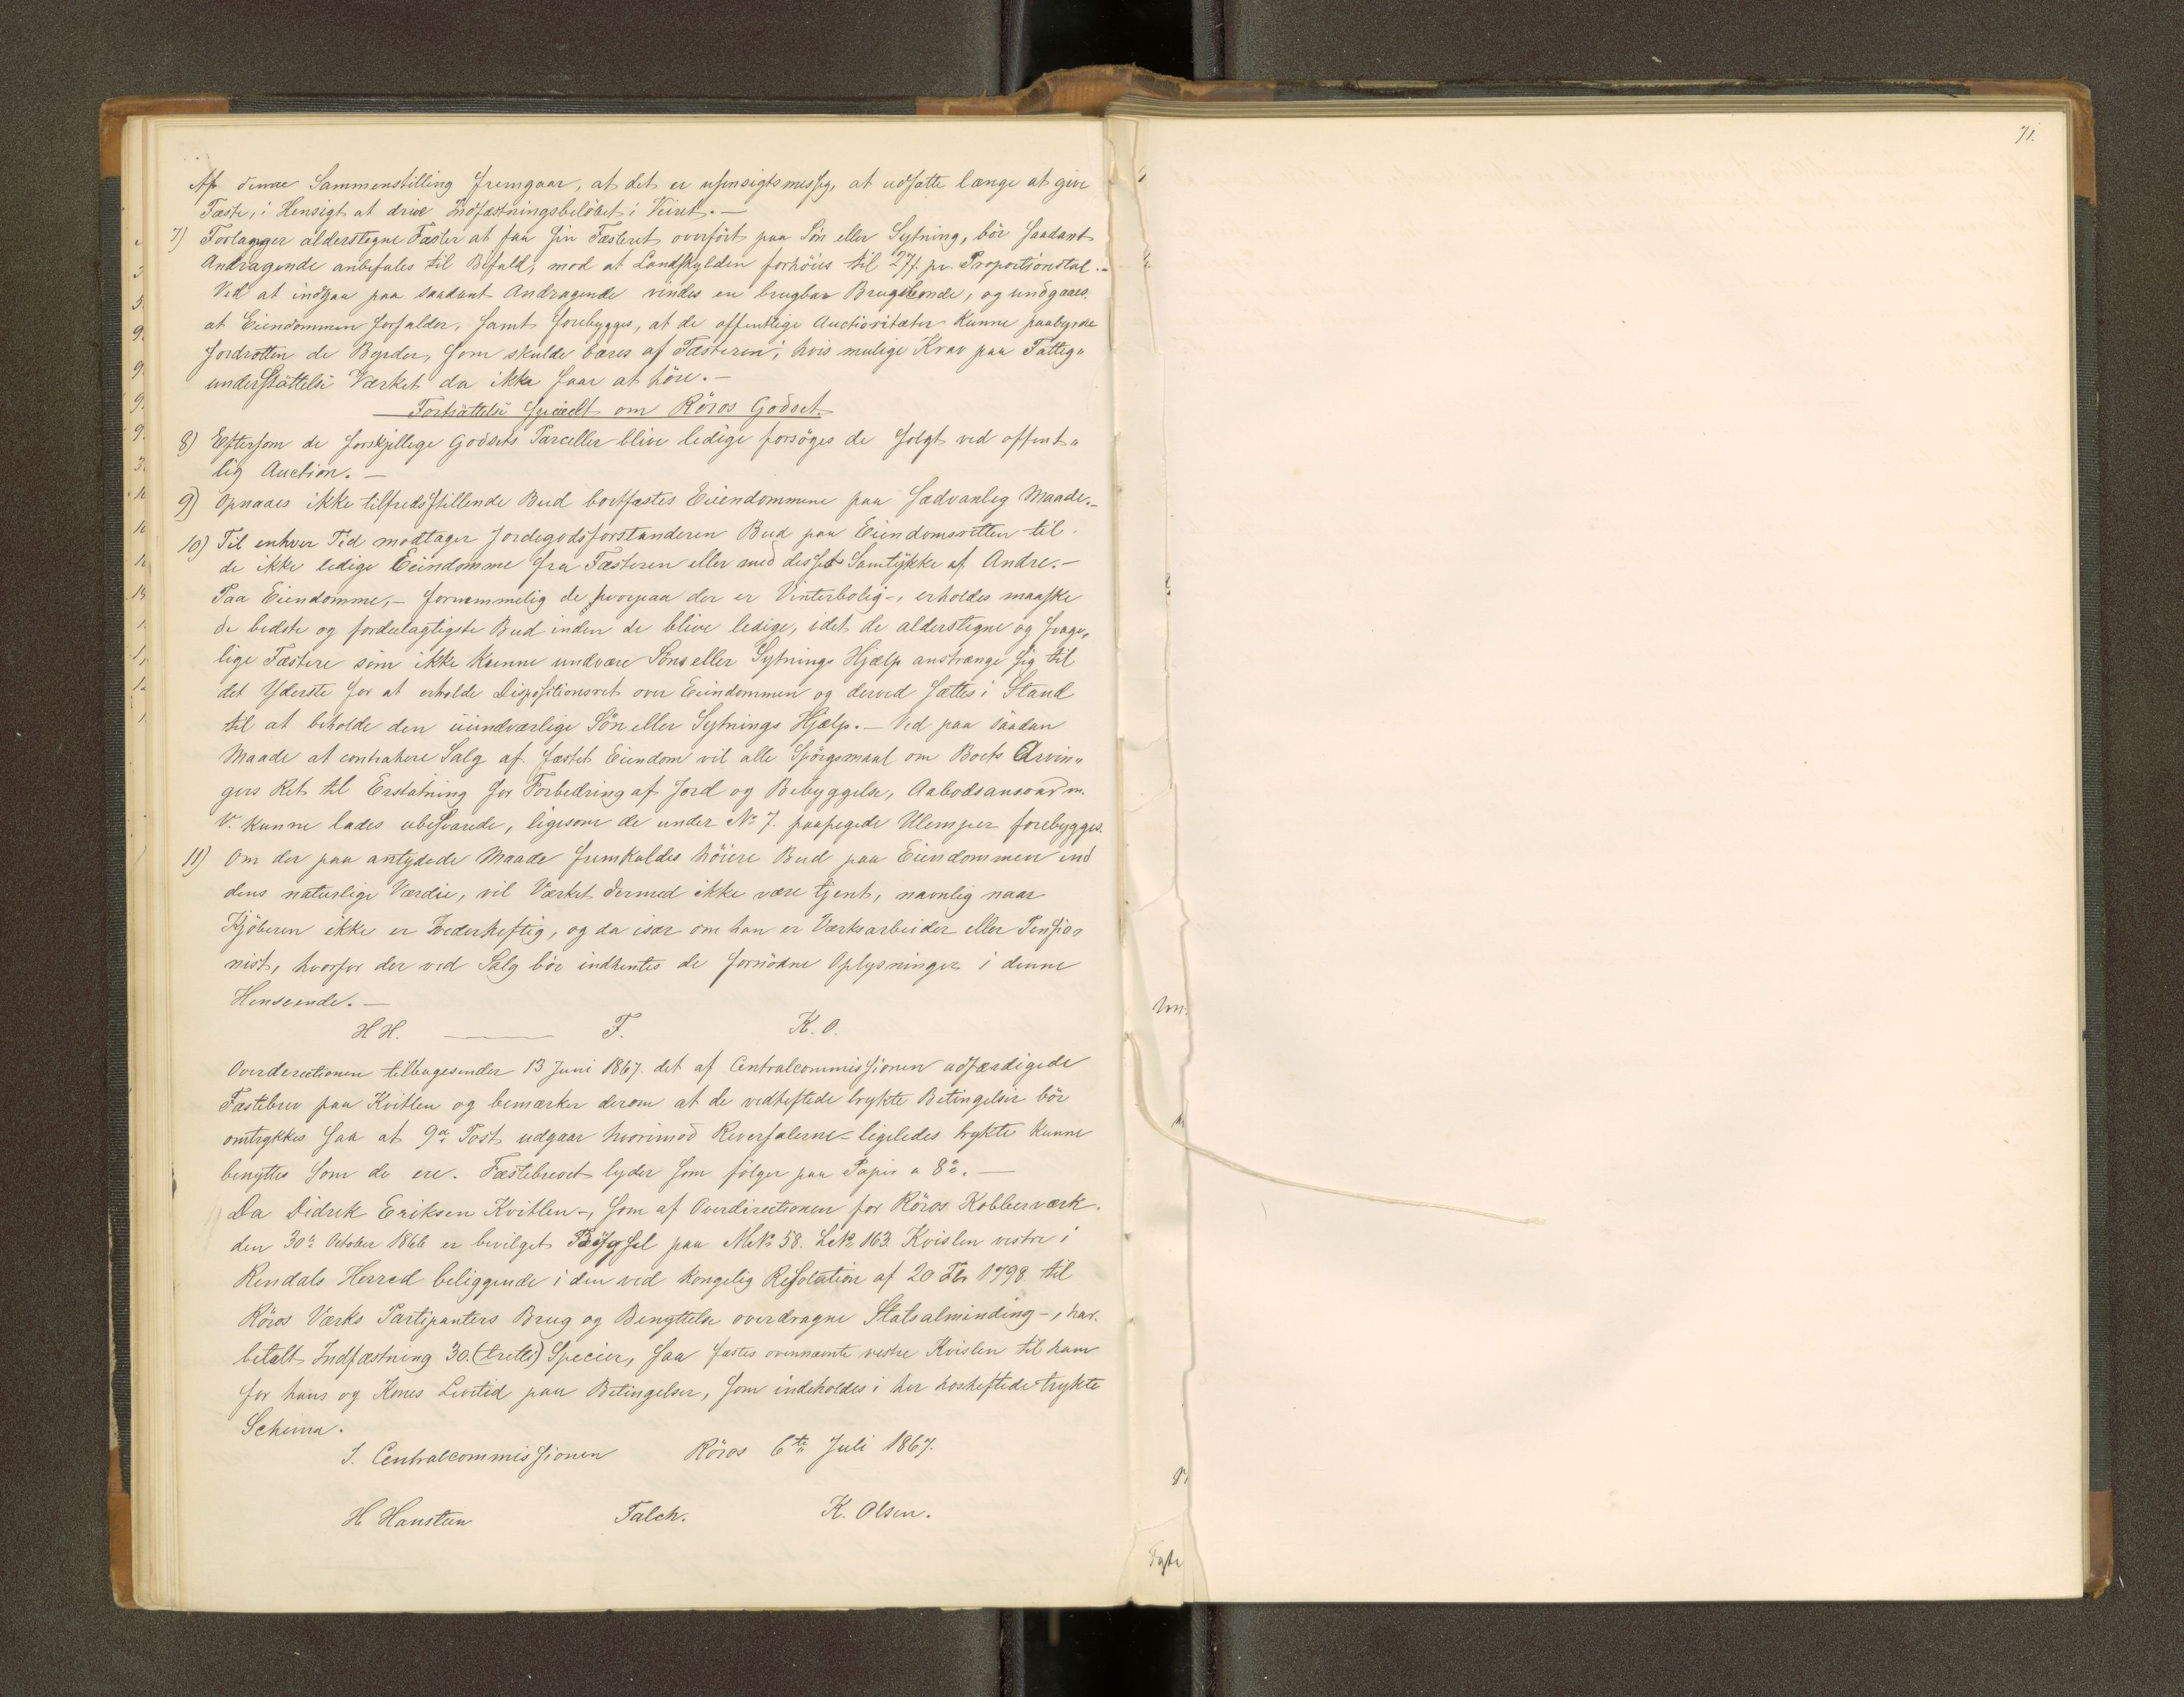 Af denne Sammenstilling fremgaar, at det er uhensigtsmessig, at udsætte længe at give
Fæste, i Hensigt at drive Indfæstningsbeløbet i Veiret. —
7) Forlanger alderstegne Fæster at faa sin Fæsteret overført paa Søn eller Sytning, bör saadant
Andragende anbefales til Bifald, mod at Landskylden forhöies til 27 f. pr. Proportionstal. -
Ved at indgaa paa saadant Andragende vindes en brugbar Brugsbonde, og undgaaes
at Eiendommen forfalder, samt forebygges, at de offentlige Auctioriteter kunne paabyrde
Jordrotten de Byrder, som skulde bæres af Fæsteren, hvis mulige Krav paa Fattig„
understöttelse Værket da ikke faar at höre. —
Fortsættelse specielt om Röros Godset
8) Eftersom de forskjellige Godsets Parceller blive ledige forsöges de solgt ved offent„
lig Auction. —
9) Opnaaes ikke tilfredsstillende Bud bortfæstes Eiendommene paa sædvanlig Maade. -
10) Til enhver Tid modtager Jordegodsforstanderen Bud paa Eiendomsretten til
de ikke ledige Eiendomme fra Fæsteren eller med dennes Samtykke af Andre. -
Paa Eiendomme, - fornemmelig de hvorpaa der er Vinterbolig -, erholdes maaske
de bedste og fordeelagtigste Bud inden de blive ledige, idet de alderstegne og svage„
lige Fæstere som ikke kunne undvære Söns eller Sytnings Hjælp anstrænge sig til
det Yderste for at erholde Dispositionsret over Eiendommen og derved sættes i Stand
til at beholde den uundværlige Sön eller Sytnings Hjælp. - Ved paa saadan
Maade at contrahere Salg af fæstet Eiendom vil alle Spörgsmaal om Boets Arvin„
gers Ret til Erstatning for Forbedring af Jord og Bebyggelse, Aabodsansvar m.
V. kunne lades ubesvarede, ligesom de under No 7. paapegede Ulemper forebygges.
11) Om der paa antydede Maade fremkaldes höiere Bud paa Eiendommen end
dens naturlige Værdie, vil Værket dermed ikke være tjent, navnlig naar
Kjöberen ikke er Vederheftig, og da især om han er Værksarbeider eller Pensio„
nist, hvorfor der ved Salg bör indhentes de fornödne Oplysninger i denne
Henseende. —
H H. — F. K. O.
Overdirectionen tilbagesender 13 Juni 1867. det af Centralcommissionen udfærdigede
Fæstebrev paa Kvitlen og bemærker derom at de vedheftede trykte Betingelser bör
omtrykkes saa at 9de Post udgaar hvorimod Reversalerne - ligeledes trykte kunne
benyttes som de ere. Fæstebrevet lyder som fölger paa Papir a 8 s. —
Da Didrik Eriksen Kvitlen -, som af Overdirectionen for Röros Kobberværk
den 30te October 1866 er bevilget Bÿgsel paa M.No 58. L.No 163. Kvislen vestre i
Rendals Herred beliggende i den ved kongelig Resolution af 20 Fbr 1798 til
Röros Værks Partipanters Brug og Benyttelse overdragne Statsalminding -, har
betalt Indfæstning 30. (tretti) Specier, saa fæstes ovennævnte vestre Kvislen til ham
for hans og Kones Levetid paa Betingelser, som indeholdes i her hosheftede trykte
Schema.
I. Centralcommissionen Röros 6te Juli 1867.
H Hansteen Falch. K. Olsen.
71.